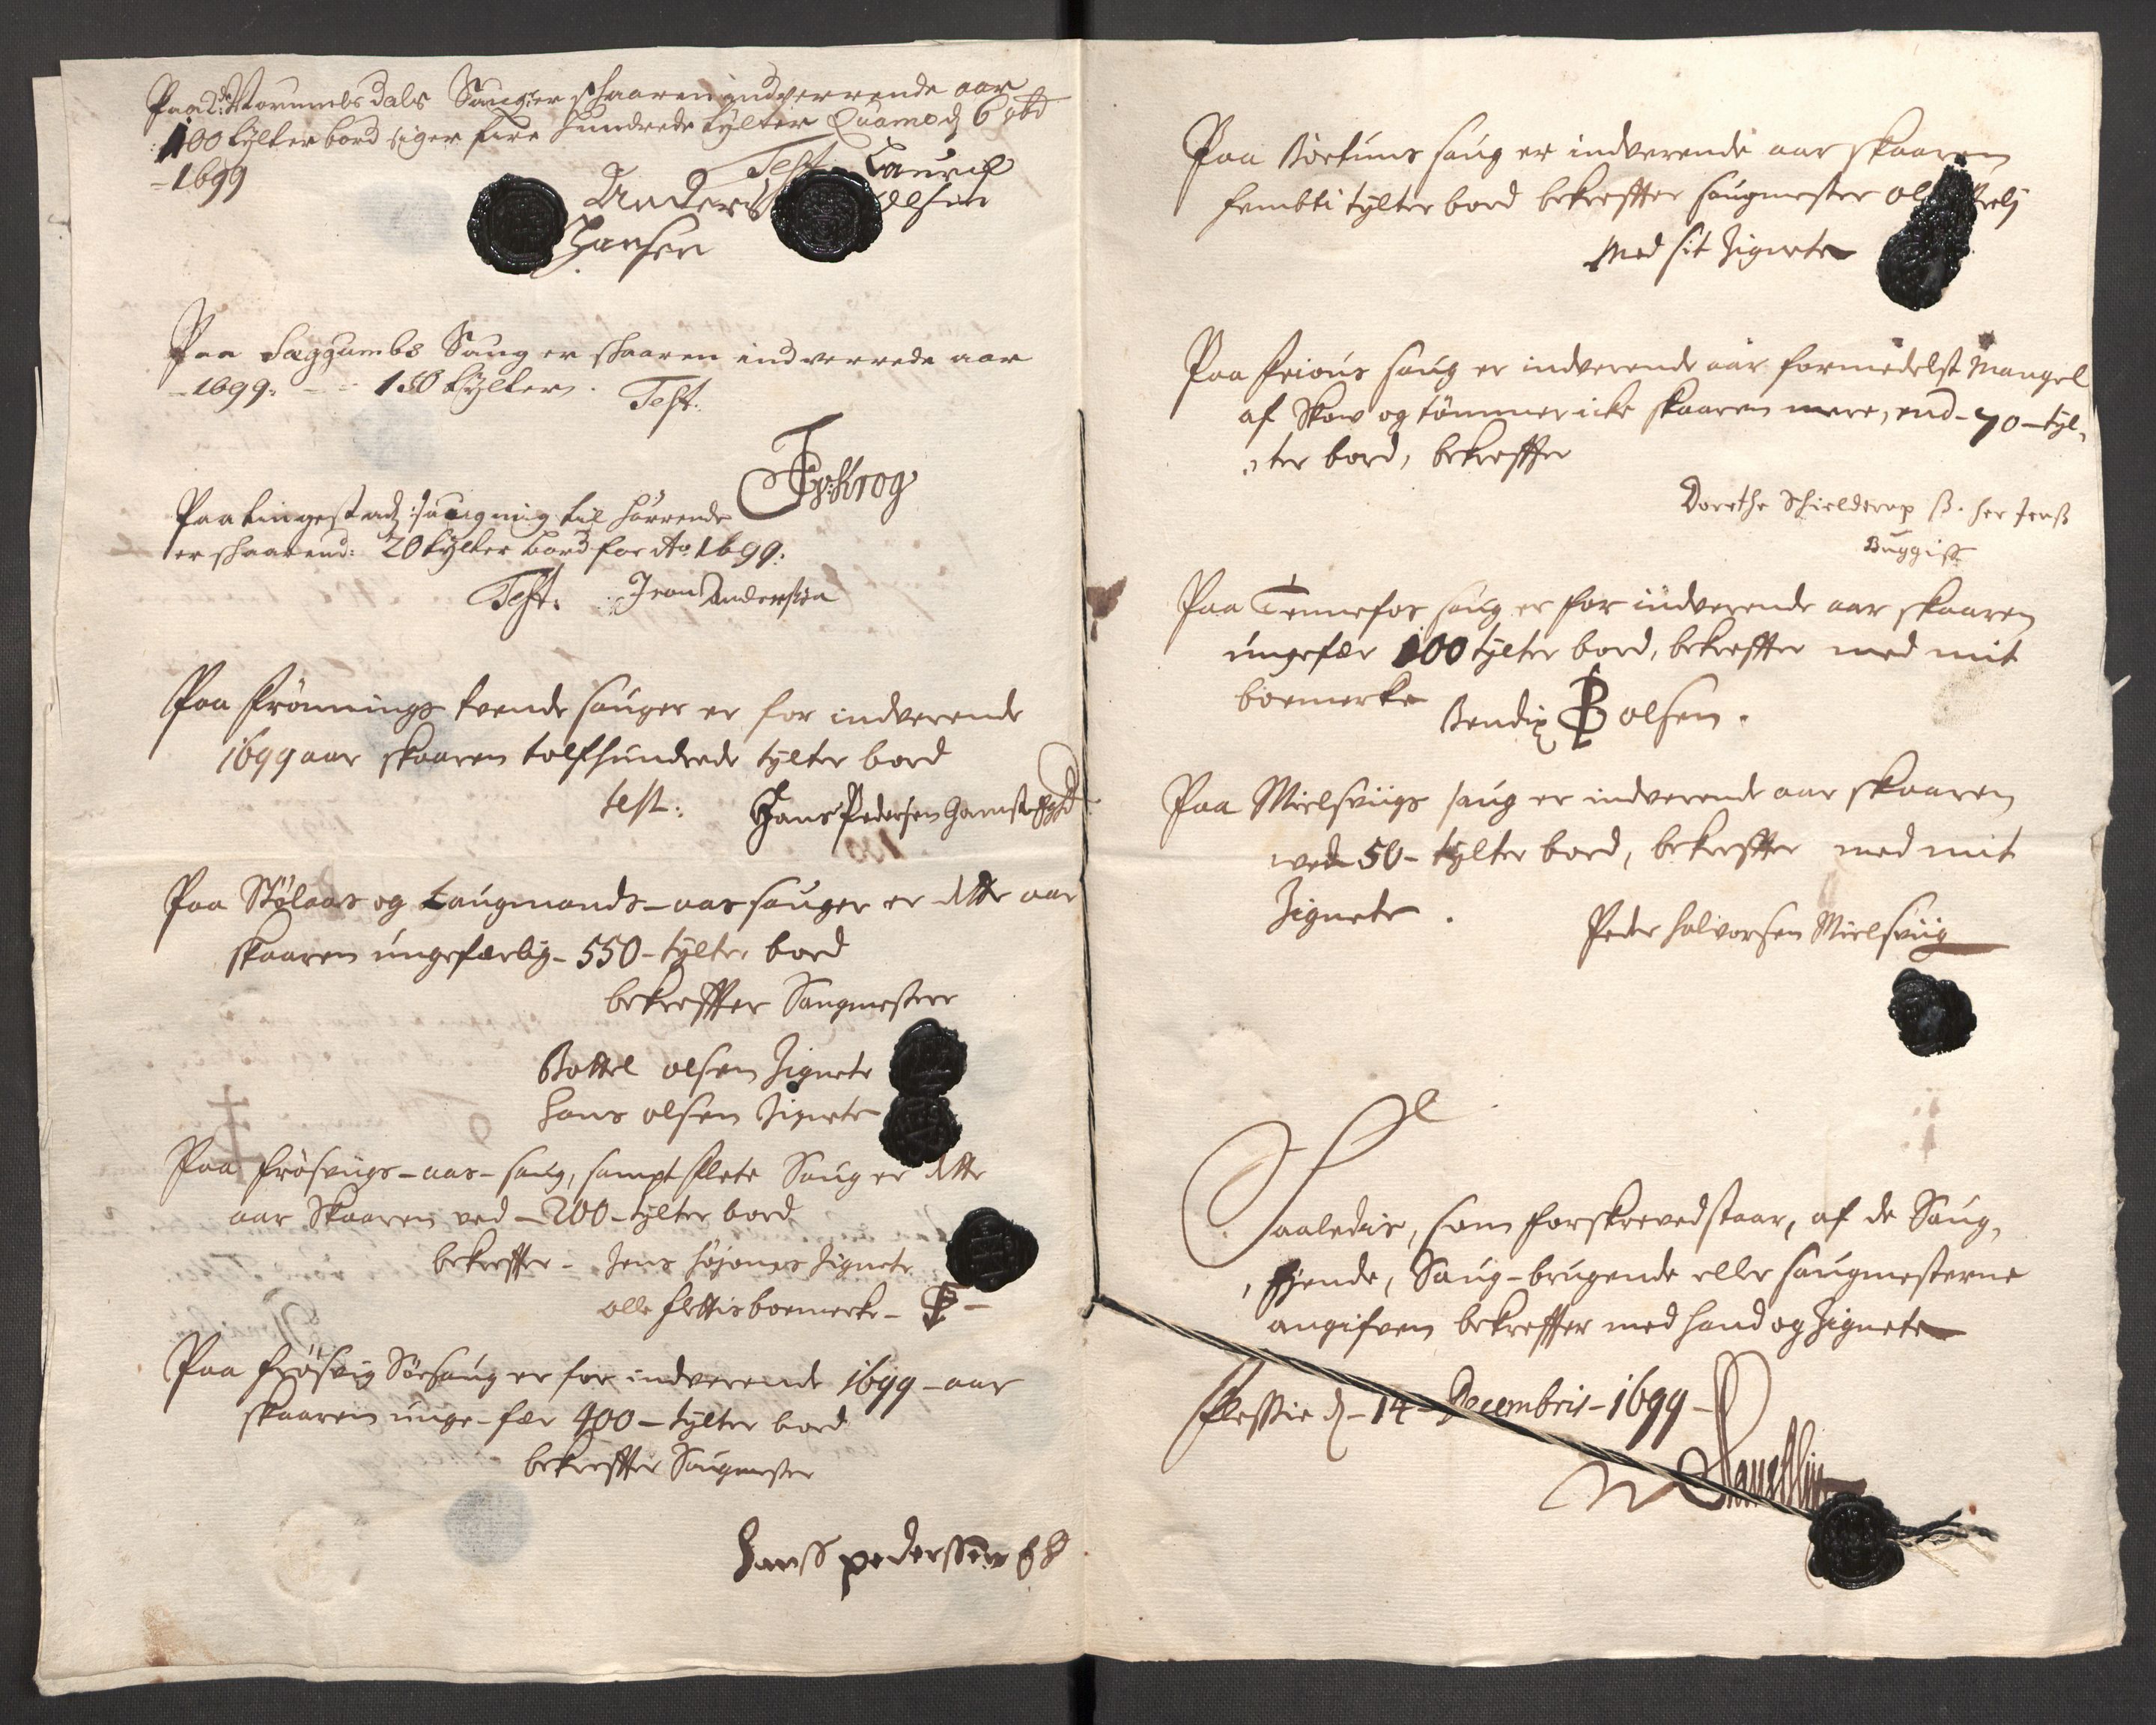 Paa Worumbs dals Sauger schaaren indverrende aar
400 tylter bord siger fire hundrede tylter Quame d 6 obd
- 1699
Test. Lauris
Anders Olsen
Hansen
Paa Seggumbs Saug er schaaren indverrede aar
- 1699: - - 150 tylter. Test.
Krog
Paa tingestad saug mig til hørrende
er schaarend: 20 tylter bord for Ao 1699:
Test. Jron Andersen
Paa Frönnings tvende sauger er for indverende
1699 aar skaaren tolfhundrede tylter bord
test: Hans Pedersen
Paa Stølaas og Laugmands-aas sauger er dette aar
skaaren ungefærlig - 550 - tylter bord
bekreffter Saugmestere
Bottel olsen Zignete
Hans olsen Zignete
Paa Frösvigs-aas-saug, sampt flete Saug er dette
aar Skaaren ved - 200 - tylter bord
bekreffter - Jens Zignete
olle flettis boemerke -
Paa Frösvig Sörsaug er for indverende 1699 - aar
skaaren unge-fær 400 - tylter bord
bekreffter Saugmester
Hanss pederssen
Paa Börtuns saug er indverende aar skaaren
fembti tylter bord bekreffter saugmester
Med sit Zignete
Paa saug er indverende aar formedelst Mangel
af Skow og tømmer icke skaaren mere, end - 70 - tyl,
,ter bord, bekreffter
Dorethe Schielderop S. her Jenss
Buggiss
Paa Tennefos saug er for indverende aar skaaren
ungefær 100 tylter bord, bekreffter med mit
boemerke Bendix B olsen.
Paa Mielsviigs saug er indverende aar skaaren
ved 50 - tylter bord, bekreffter med mit
Zignete.
Peder Halvorsen Mielsviig
Saaledis, som forskrevedstaar, af de Saug,
, Ejende, Saug-brugende eller saugmesterne
angifven bekreffter med hand og Zignete
d - 14 - Decembris - 1699 -